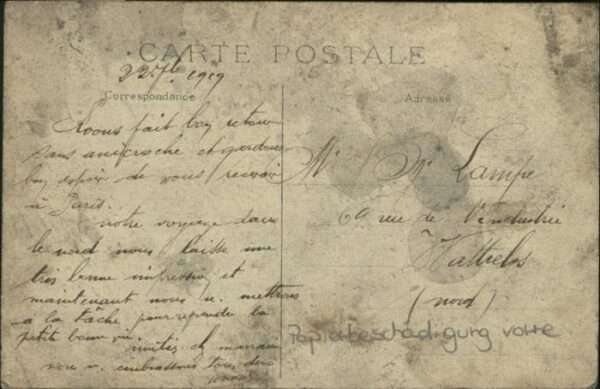 CARTE POSTALE
22 7bre 1919
Correspondance
Adresse
Avons fait bon retour
sans anicroche et gardons
bon espoir de vous revoir
à Paris.
notre voyage dans
le nord nous laisse une
très bonne impression et
maintenant nous n. mettrons
a la tâche pour reprendre la
petite
amitiés et
vous n. embrassons tous deux
Mr Me Lampe
69 rue de l'industrie
Wattrelos
(nord)
Papierbeschädigung vorne